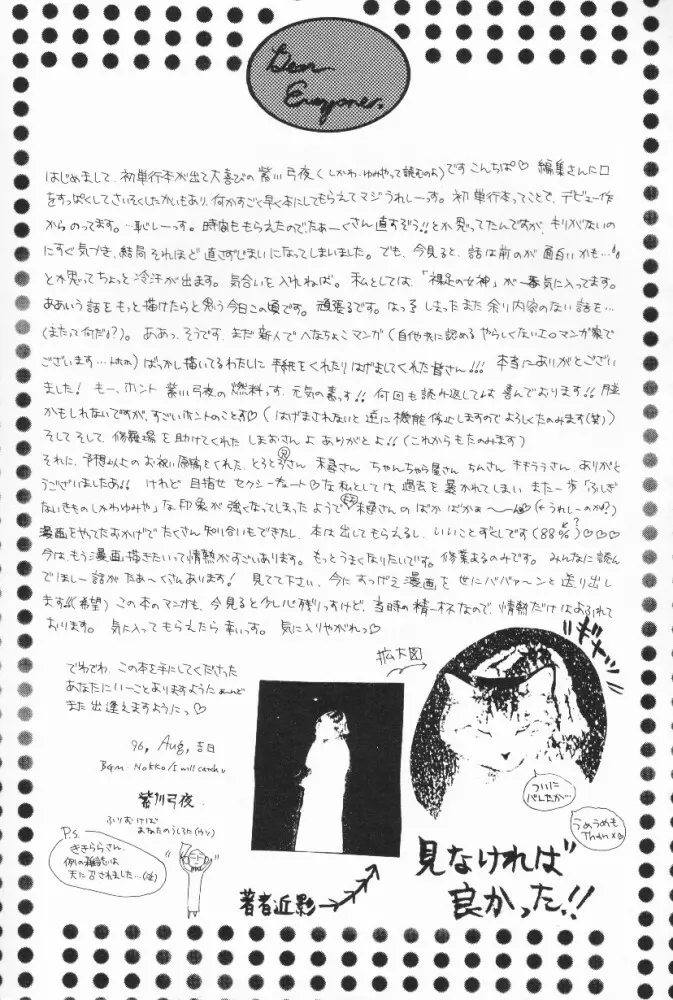 Dear
Everyone.
はじめまして、初単行本が出て大喜びの紫川弓夜(しかわ・ゆみやって読むのよ)ですこんちぱ♡ 編集さんに口
をすっぱくしてさいそくしたかいもあり、何かすごく早く本にしてもらえてマジうれしーっす。初単行本ってことで、デビュー作
からのってます。恥しーっす。時間ももらえたのでたぁーくさん直すぞう!!とか思ってたんですが、キリがないの
にすぐ気づき、結局それほど直さずじまいになってしまいました。でも、今見ると、話は前のが面白いかも…
とか思ってちょっと冷汗が出ます。気合いを入れねば。私としては、「裸足の女神」が一番気に入ってます。
ああいう話をもっと描けたらと思う今日この頃です。頑張るです。はっ しまったまた余り内容のない話を…
(またって何だ?)。ああっ、そうです、まだ新人でへなちょこマンガ(自他共に認めるやらしくないエロマンガ家で
ございます…トホホ)ばっかし描いてるわたしに手紙をくれたりはげましてくれた皆さん!!! 本当にありがとござい
ました! もー、ホント紫川弓夜の燃料っす、元気の素っす!! 何回も読み返しては喜んでおります!! 月並
かもしれないですが、すごいホントのことす♡(はげまされないと逆に機能停止しますのでよろしくたのみます(笑))
そしてそして、修羅場を助けてくれたしまおさんよありがとよ!!(これからもたのみます)
それに、予想以上のお祝い原稿をくれた、とろとろさん 木尋さん ちゃんちゃら屋さん ちんさん キキララさん、ありがと
うございましたあ!! けれど目指せセクシーキュート♡な私としては過去を暴かれてしまい また一歩「ふしぎ
ないきものしかわゆみや」な印象が強くなってしまったようで 木尋さんのばか ばかぁ〜ん(←うれしーのか?)
漫画をやってたおかげでたくさん知り合いもできたし、本は出してもらえるし、いいことずくしです(88%?)♡♡♡
今はもう漫画描きたいって情熱がすごいあります。もっとうまくなりたいです。修業あるのみです。みんなに読ん
でほしー話がたぁーくさんあります! 見てて下さい、今にすっげえ漫画を世にババァーンと送り出し
ます!!(希望) この本のマンガも、今見ると少し心残りっすけど、当時の精一杯なので、情熱だけはあふれて
おります。気に入ってもらえたら幸いっす。気に入りやがれっ♡
でわでわ、この本を手にしてくださった
あなたにいーことありますように
また出逢えますようにっ♡
96, Aug, 吉日
BGM Nokko/I will catch u
紫川弓夜
ふりむけば
あなたのうしろに(ウソ)
P.S.
ききららさん、
例の雑誌は
天に召されました…(泣)
拡大図
ギャー
ついに
バレたか…
うめうめも
Thanx
著者近影
見なければ
良かった!!